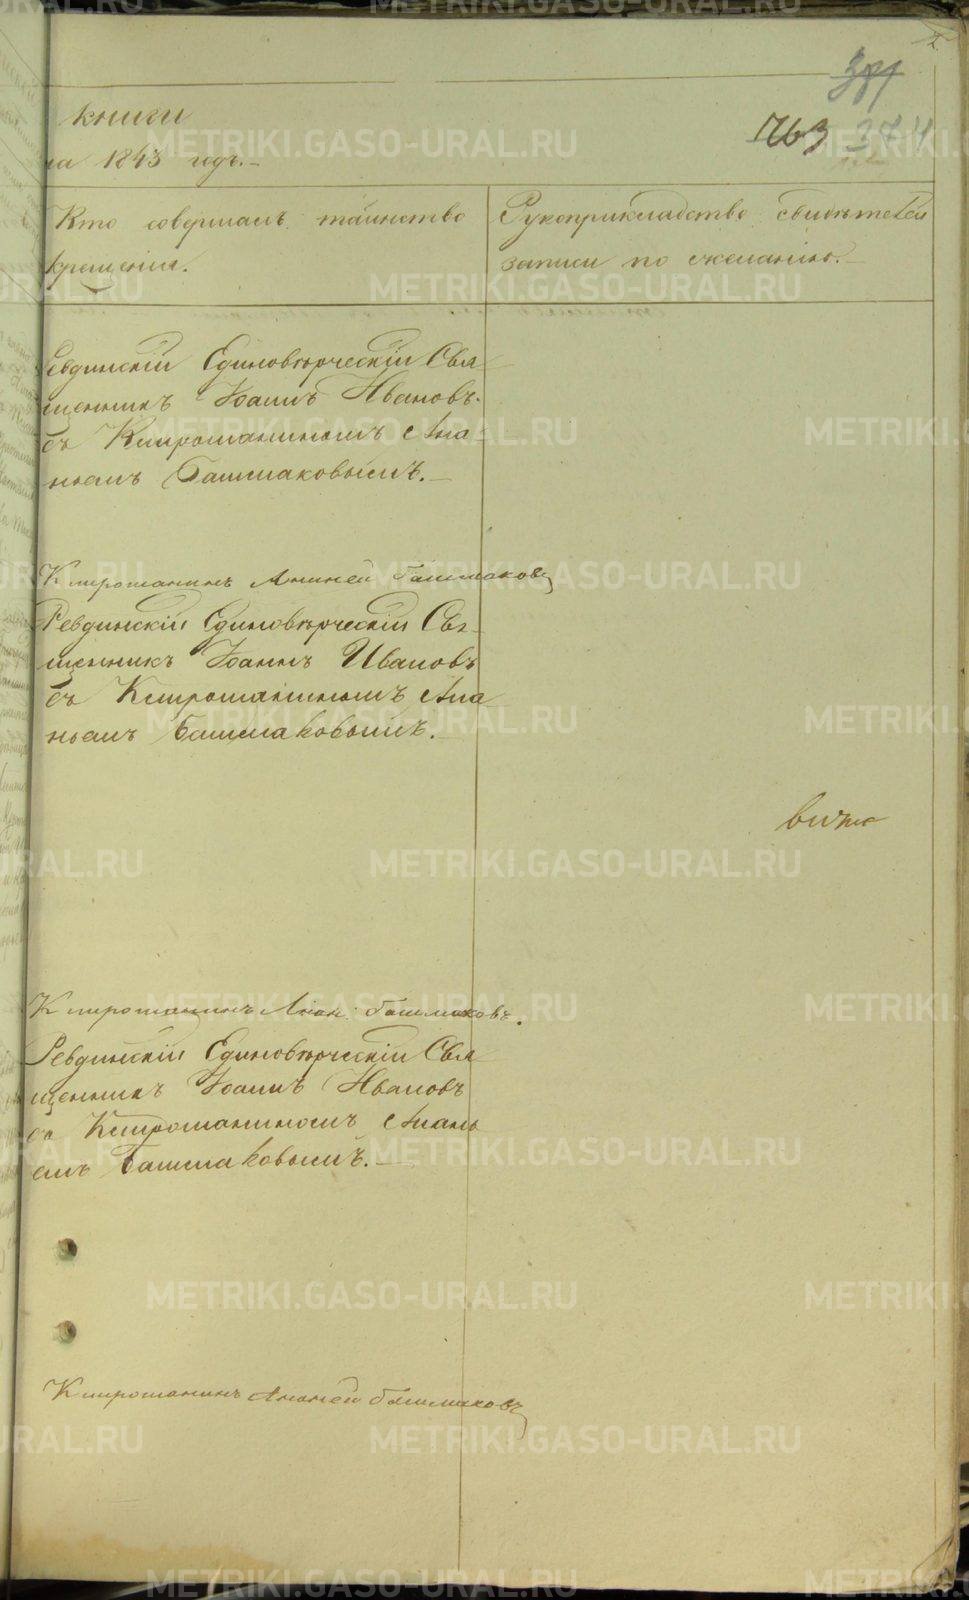 книги
на 1843 годъ.
763
Кто совершалъ таинство
крещенія.
Рукоприкладство свидѣтелей
записи по желанію.
Ревдинскій Единовѣрческій Свя
щенникъ Іоаннъ Ивановъ
съ Клирошаниномъ Ана-
ньемъ Башмаковымъ.
Клирошанинъ Ананей Башмаковъ
Ревдинскій Единовѣрческій Свя
щенникъ Іоаннъ Ивановъ
съ Клирошаниномъ Ана
ньемъ Башмаковымъ.
Клирошанинъ Анан: Башмаковъ.
Ревдинскій Единовѣрческій Свя
щенникъ Іоаннъ Ивановъ
съ Клирошаниномъ Анань
емъ Башмаковымъ.
Клирошанинъ Ананей Башмаковъ
METRIKI.GASO-URAL.RU